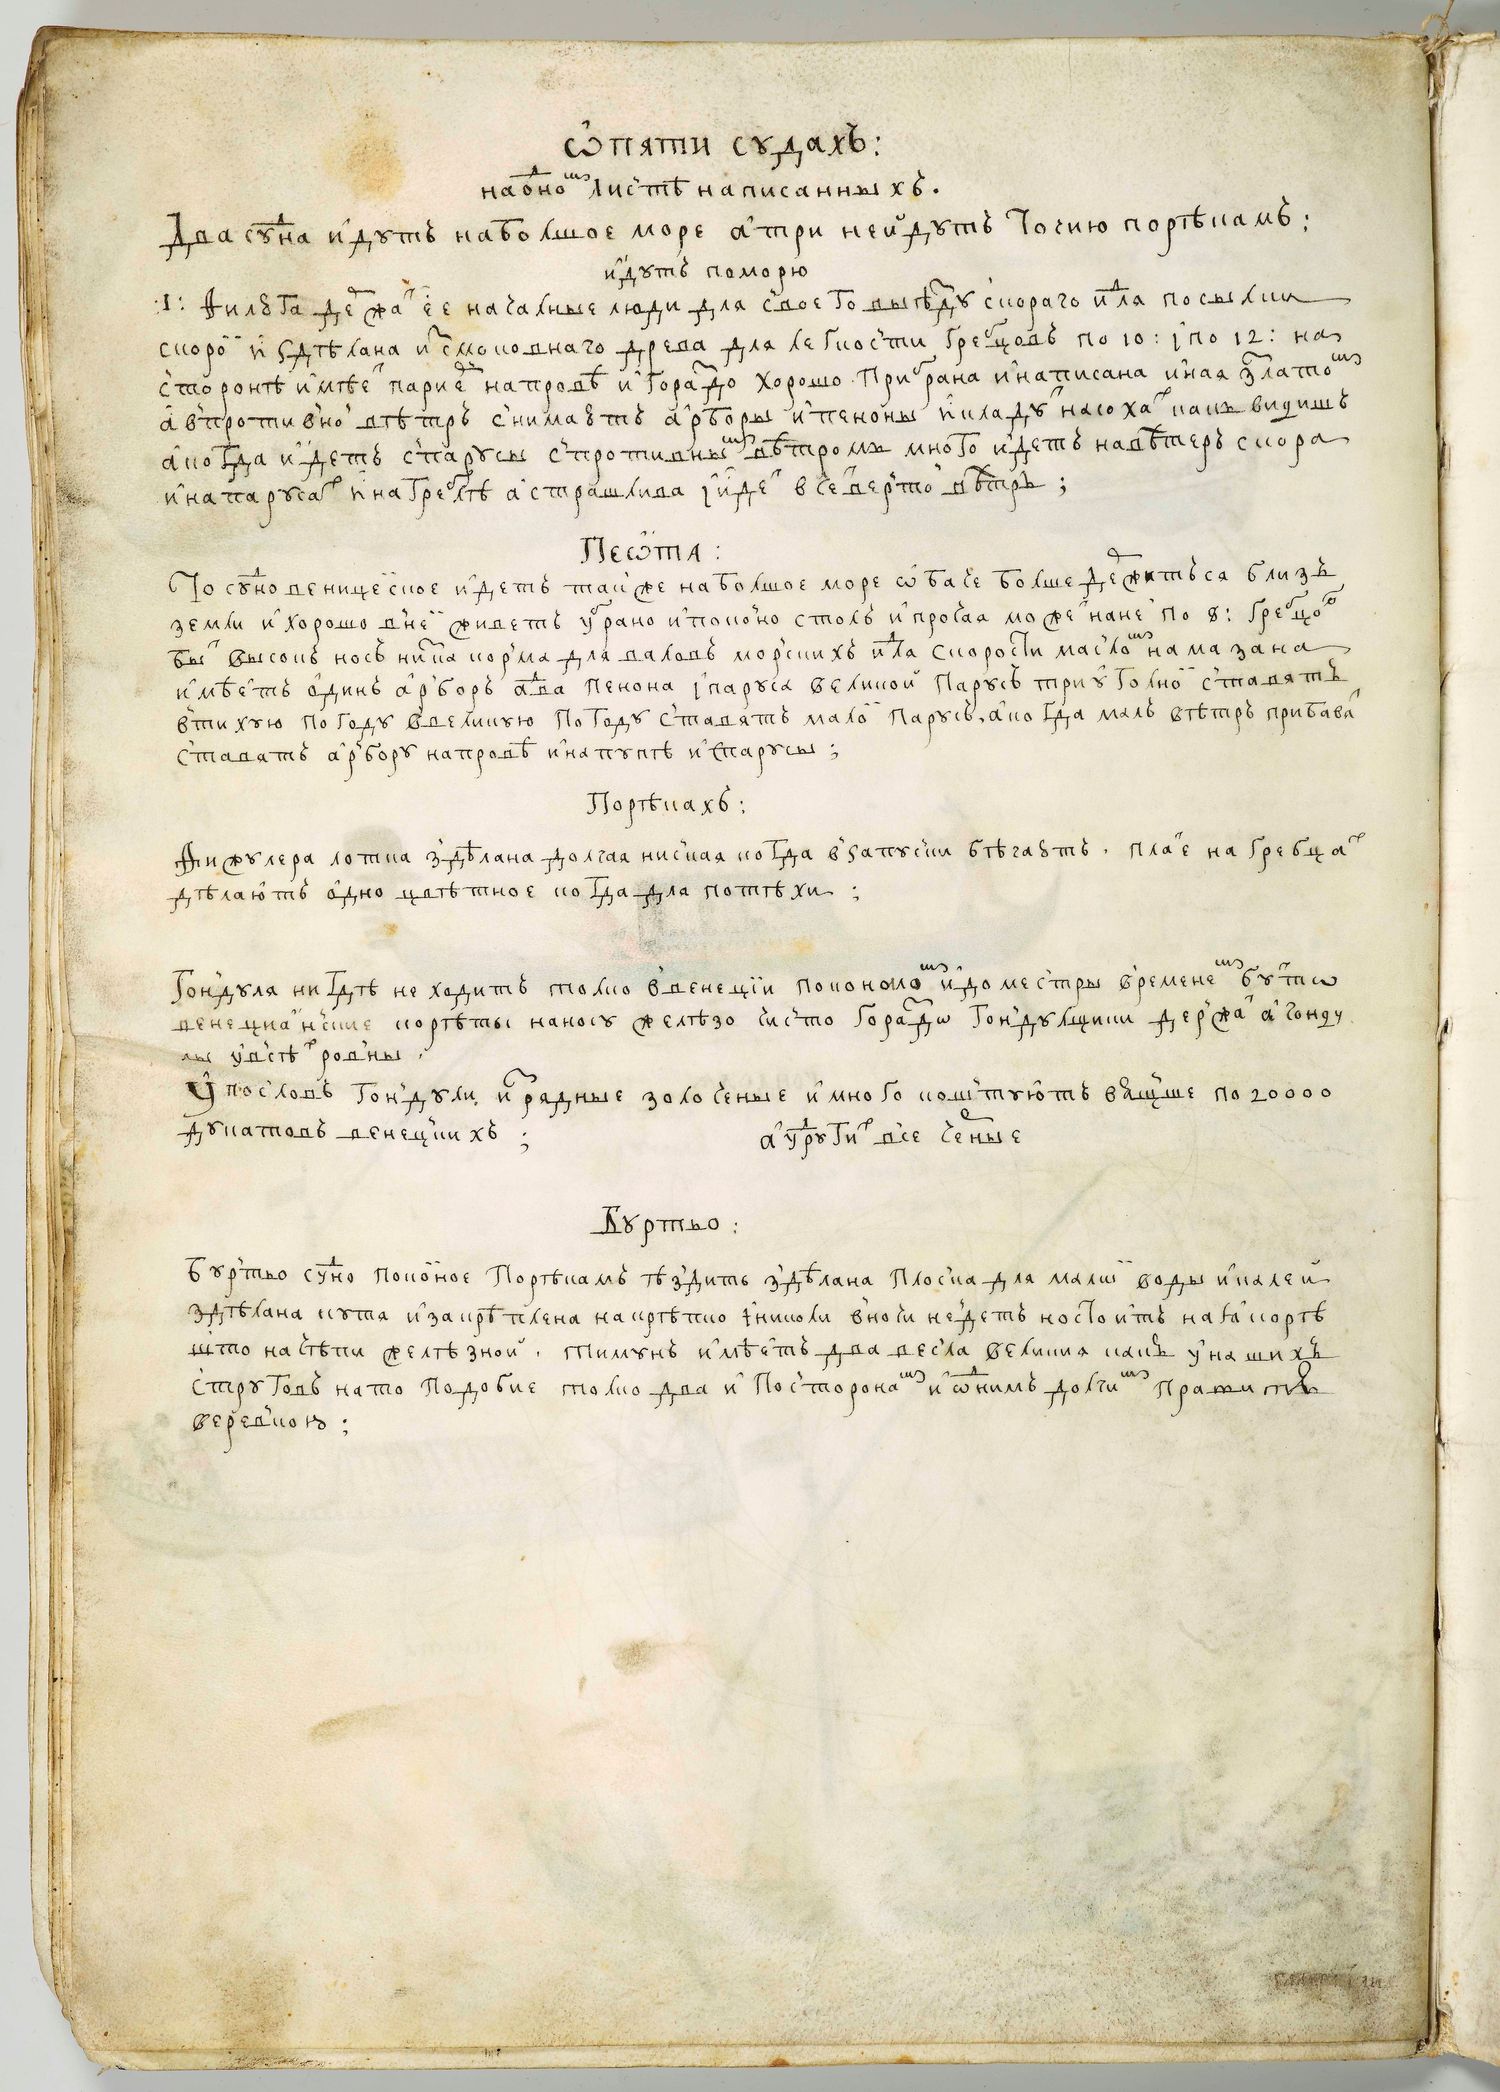 ѡ пяти судахъ:
на одно(м) листѣ написанныхъ.
Два судна идутъ на болшое море а три нейдутъ точию по рѣкамъ:
идутъ по морю
1: Филюга держа(т) ее началные люди для своего выѣзду скораго и для посылки
скорои и здѣлана ис моковнаго древа для легкости гребцовъ по 10: i по 12: на
сторонѣ имѣе(т) парие(ж) на провѣ и гораздо хорошо прибрана и написана иная злато(м)
а в противно вѣтръ снимаютъ арборы и пеноны и кладу(т) на соха(х) какъ видишъ
а когда идетъ с парусы с противны(м) вѣтромъ много идетъ на вѣтеръ скора
и на паруса(х) и на греблѣ а страшлива i иде(т) в четверто вѣтръ;
Пеѡта:
То судно веницейское идетъ такъже на болшое море ѡбаче болше держитъся близъ
земли и хорошо в ней живетъ убрано и покойно столъ и прочая може(т) на не(й) по 8: гребцо(в)
бы(т) высокъ носъ ниска корма для валовъ морскихъ и для скорости масло(м) намазана
имѣетъ одинъ арборъ а два пенона i паруса великой парусъ триуголной ставятъ
в тихую погоду в великую погоду ставятъ малой парусъ, а когда малъ вѣтръ прибавя(т)
ставятъ арбору на провѣ и на пупѣ и с парусы;
По рѣкахъ:
Фижулера лотка здѣлана долгая ниская когда в запуски бѣгаютъ. пла(т)е на гребца(х)
дѣлаютъ одно цвѣтное когда для потѣхи;
Гондуля нигдѣ не ходитъ толко в венецiи по коноло(м) и до местры времене(м) бу(т)то
венециански(е) корѣты на носу желѣзо чисто гораздо гондулщики держа(т) а гонду
лы у всѣ(х) ровны.
У пословъ гондули изрядные золоченые и много коштуютъ вящше по 20000
дукатовъ венецкихъ; а у други(х) все че(р)ные
Буртьо:
Буртьо судно покойное по рѣкамъ ѣздить здѣлана плоска для малой воды и калей
здѣлана кутя и закрѣплена на крѣпко i николи в ночи нейдетъ но стоитъ на якорѣ
што на чѣпи желѣзной. тимунъ имѣетъ два весла великия какъ у нашихъ
струговъ на то подобие толко два и по сторона(м) и ѡднимъ долги(м)
веревкою;